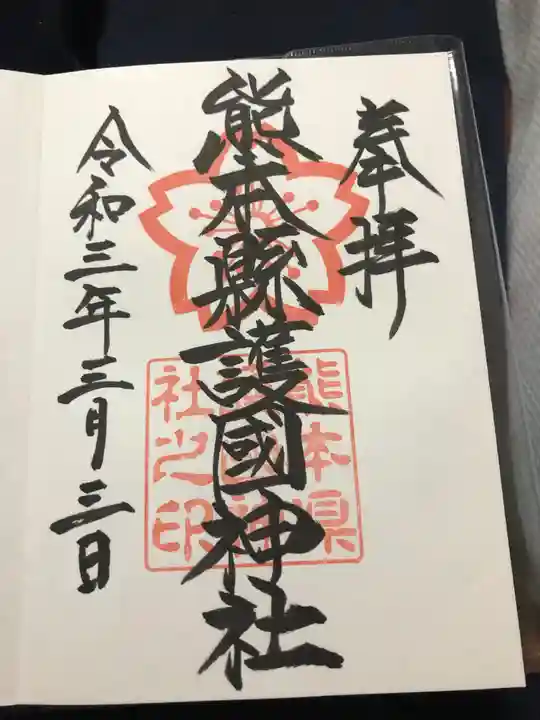 奉拝
熊本縣護國神社
熊本県
護國神
社之印
令和三年三月三日